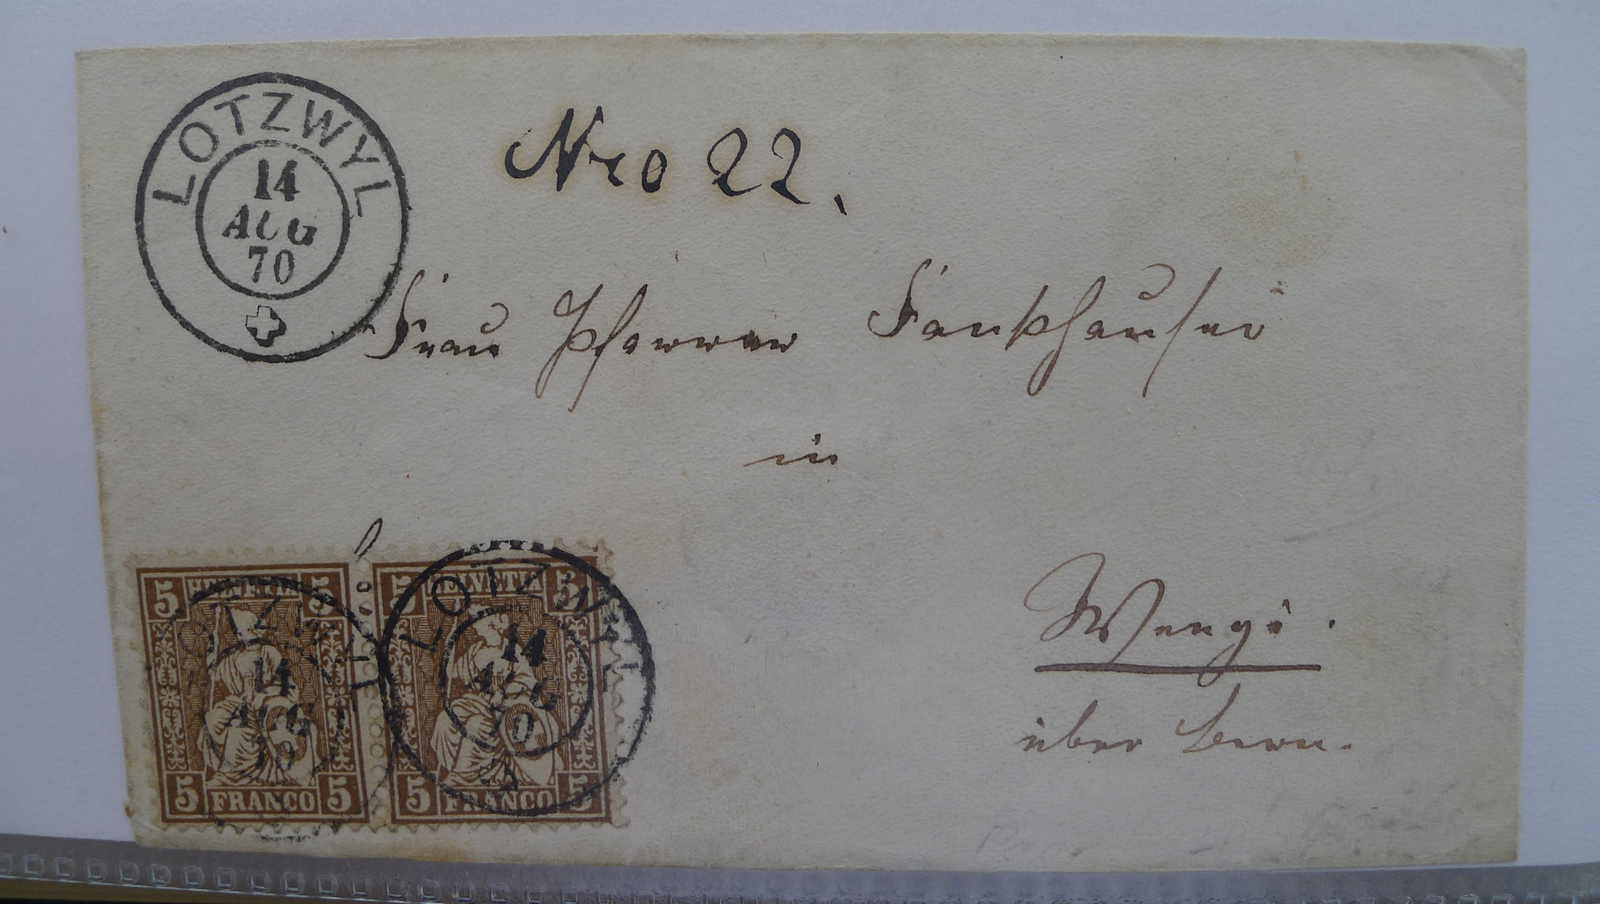 LOTZWYL
14
AUG
70
Nro 22.
Frau Pfarrer Fankhauser
in
Wengi.
über Bern.
5 HELVETIA 5
5 FRANCO 5
5 HELVETIA 5
5 FRANCO 5
LOTZWYL
14
AUG
70
LOTZWYL
14
AUG
70